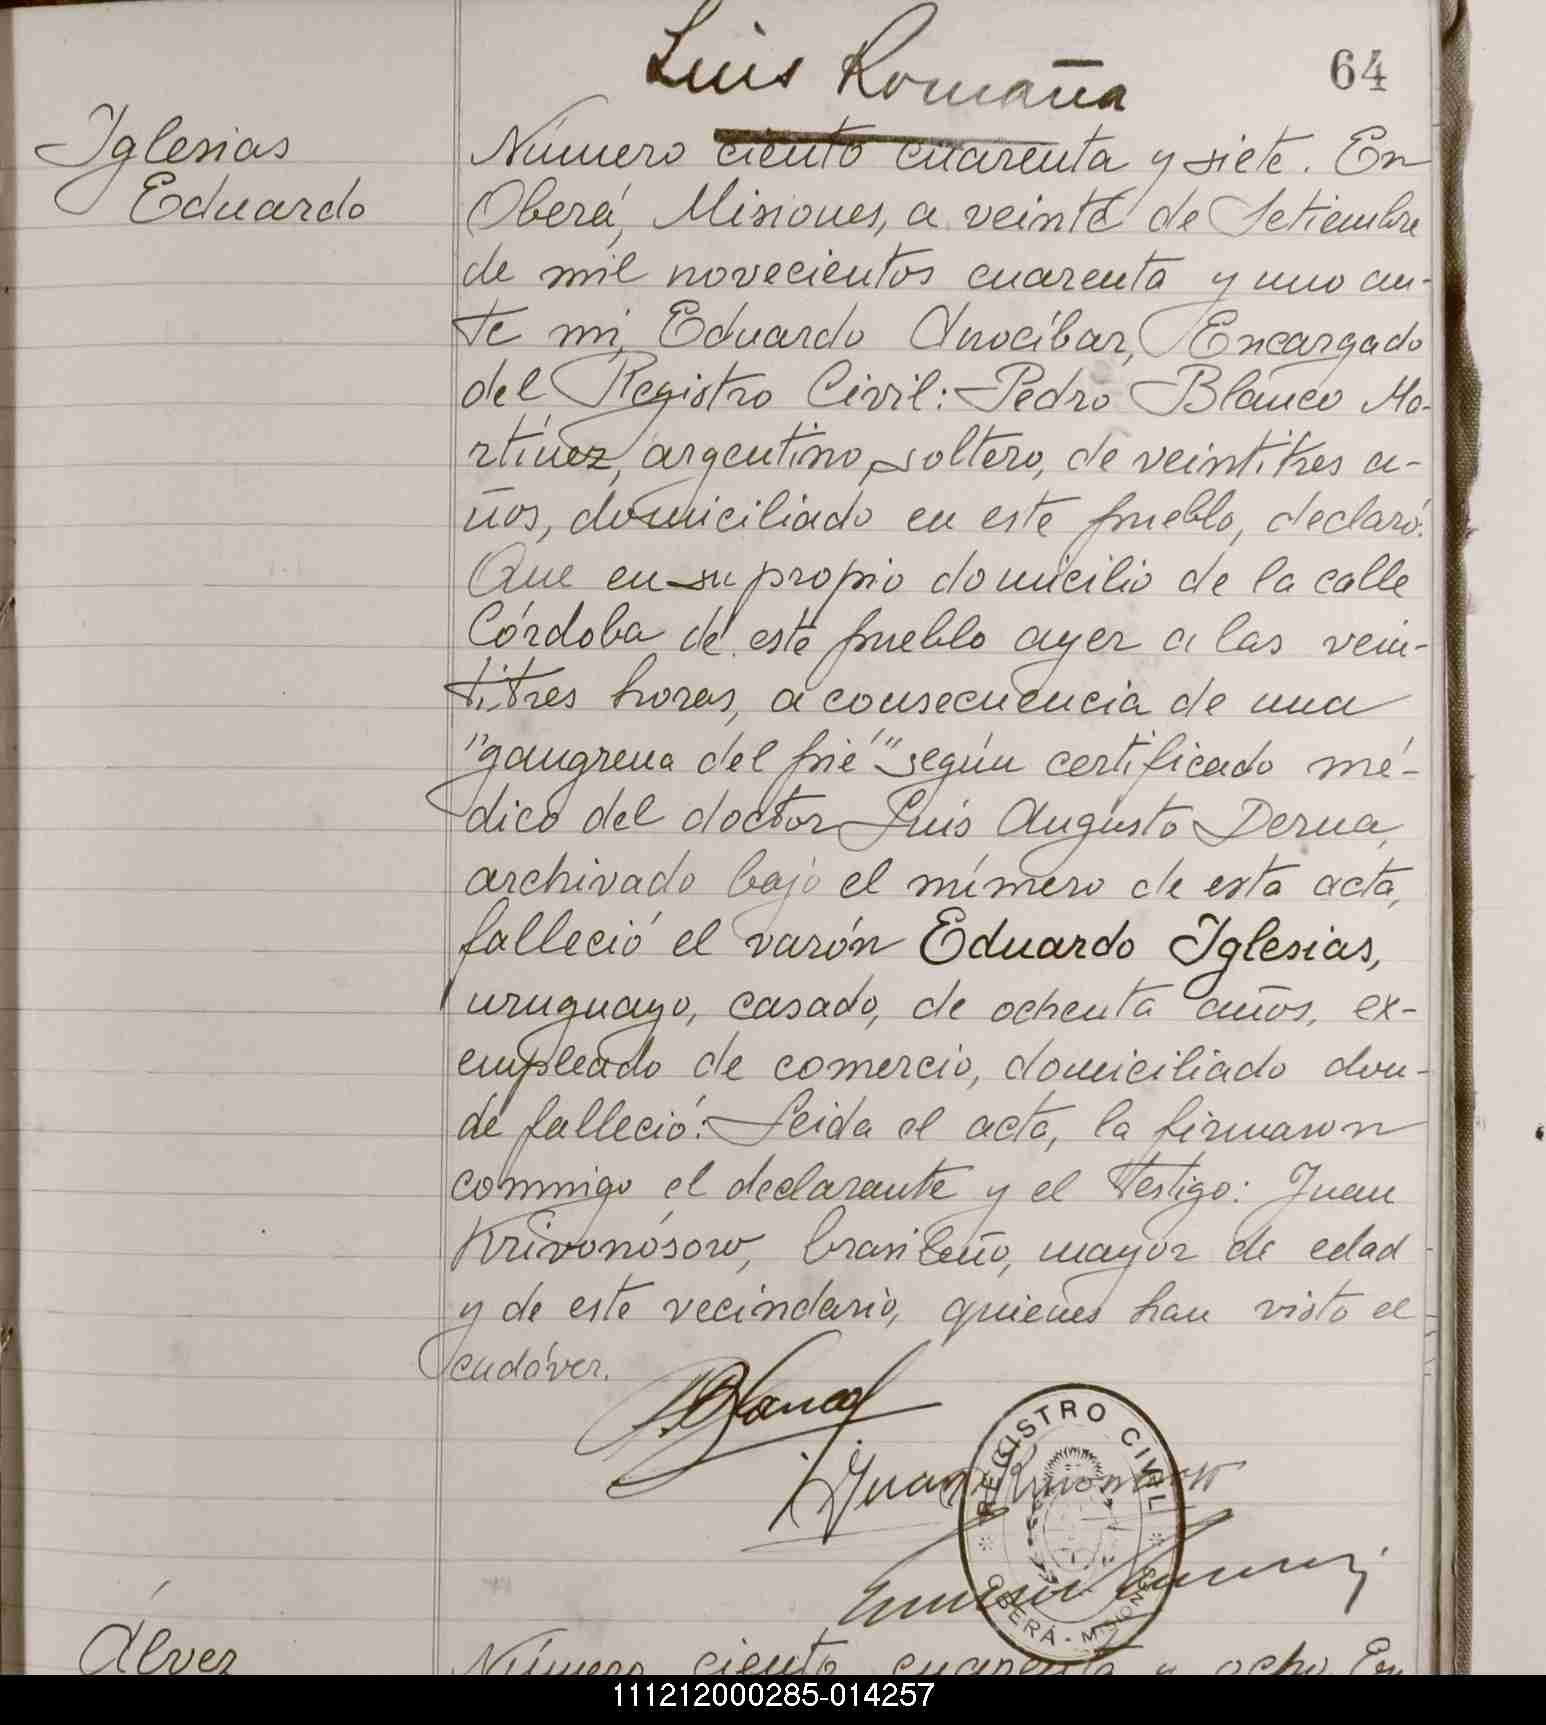 Luis Romaña
64
Iglesias
Eduardo
Número ciento cuarenta y siete. En
Oberá, Misiones, a veinte de Setiembre
de mil novecientos cuarenta y uno an-
te mi, Eduardo Anocíbar, Encargado
del Registro Civil: Pedro Blanco Ma-
rtínez, argentino, soltero, de veintitres a-
ños, domiciliado en este pueblo, declaró:
Que en su propio domicilio de la calle
Córdoba de este pueblo ayer a las vein-
titres horas, a consecuencia de una
"gangrena del pié" según certificado mé-
dico del doctor Luis Augusto Derna,
archivado bajo el número de esta acta,
falleció el varón Eduardo Iglesias,
uruguayo, casado, de ochenta años, ex-
empleado de comercio, domiciliado don-
de falleció. Leida el acta, la firmaron
conmigo el declarante y el testigo: Juan
Krivonósow, brasileño, mayor de edad
y de este vecindario, quienes han visto el
cadáver.
P. Blanco
Juan
REGISTRO CIVIL
OBERÁ - MISIONES
Álvez
Número ciento cuarenta y ocho. En
111212000285-014257